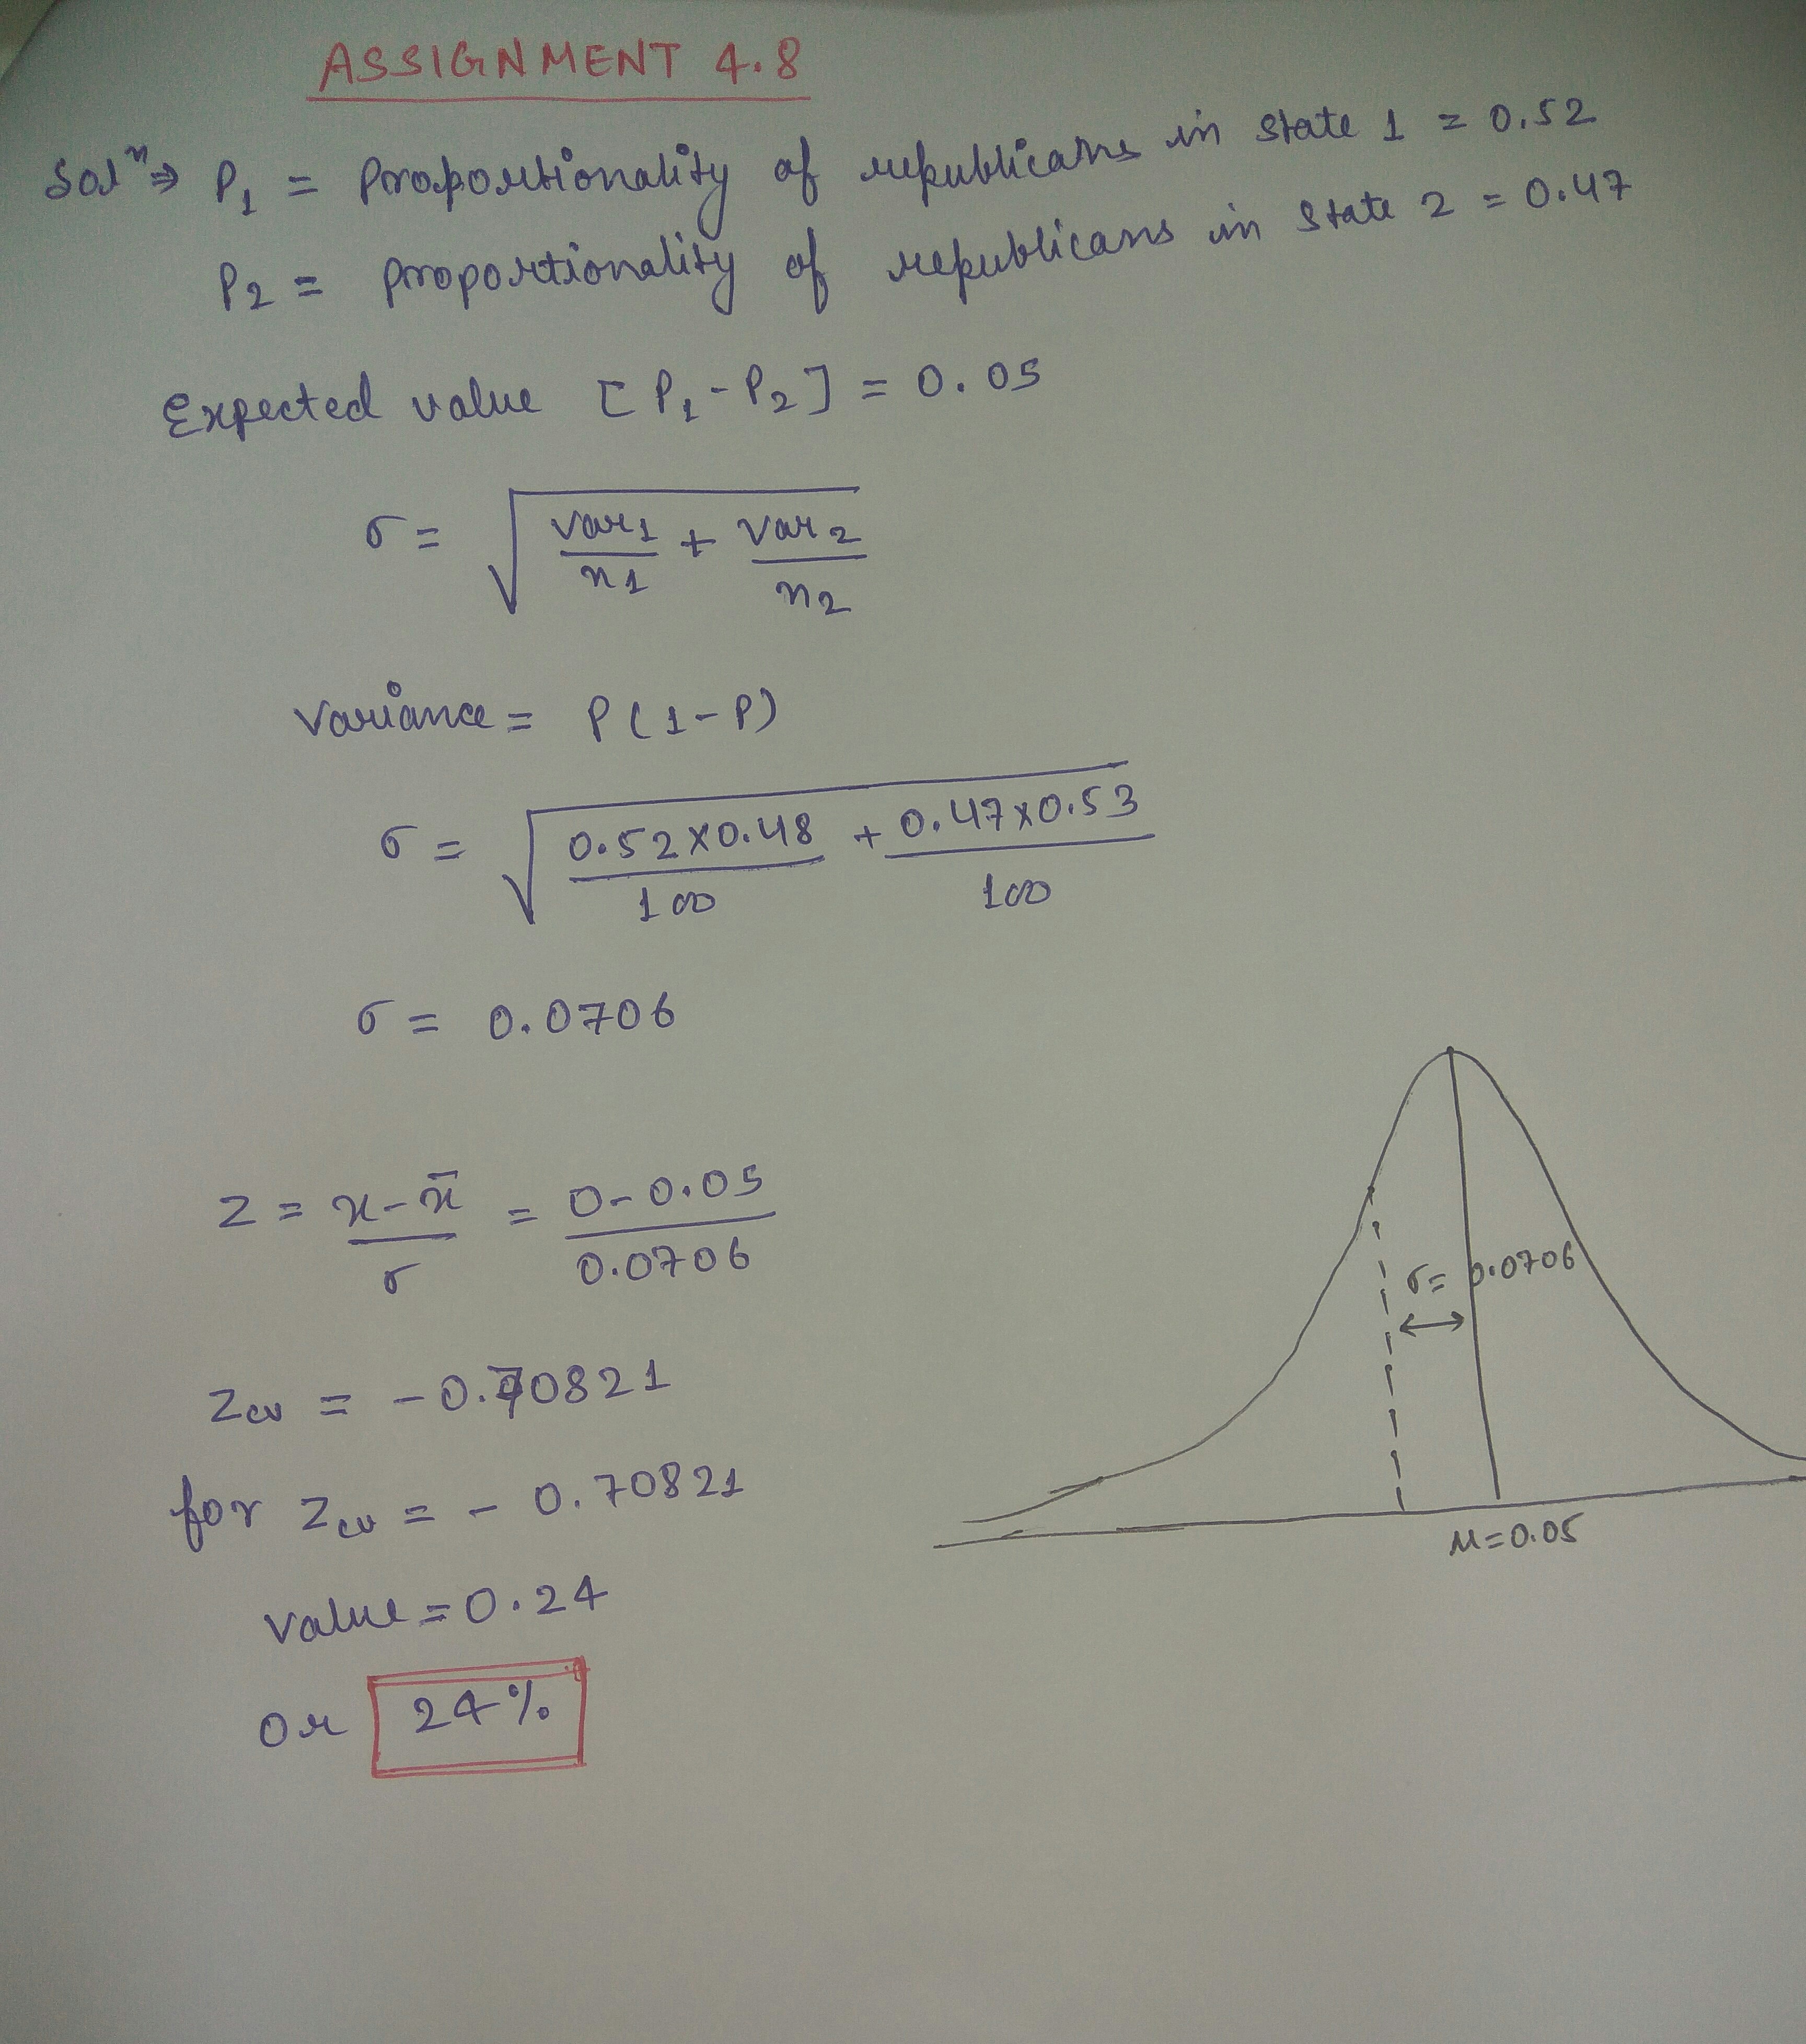 ASSIGNMENT 4.8
Solⁿ ⇒ P₁ = Proportionality of republicans in state 1 = 0.52
P₂ = proportionality of republicans in state 2 = 0.47
Expected value [P₁-P₂] = 0.05
σ = √(var₁/n₁ + var₂/n₂)
Variance = P(1-P)
σ = √(0.52×0.48/100 + 0.47×0.53/100)
σ = 0.0706
Z = x-x̄/σ = 0-0.05/0.0706
σ= 0.0706
Zcv = -0.70821
for Zcv = -0.70821
M=0.05
Value = 0.24
or 24%